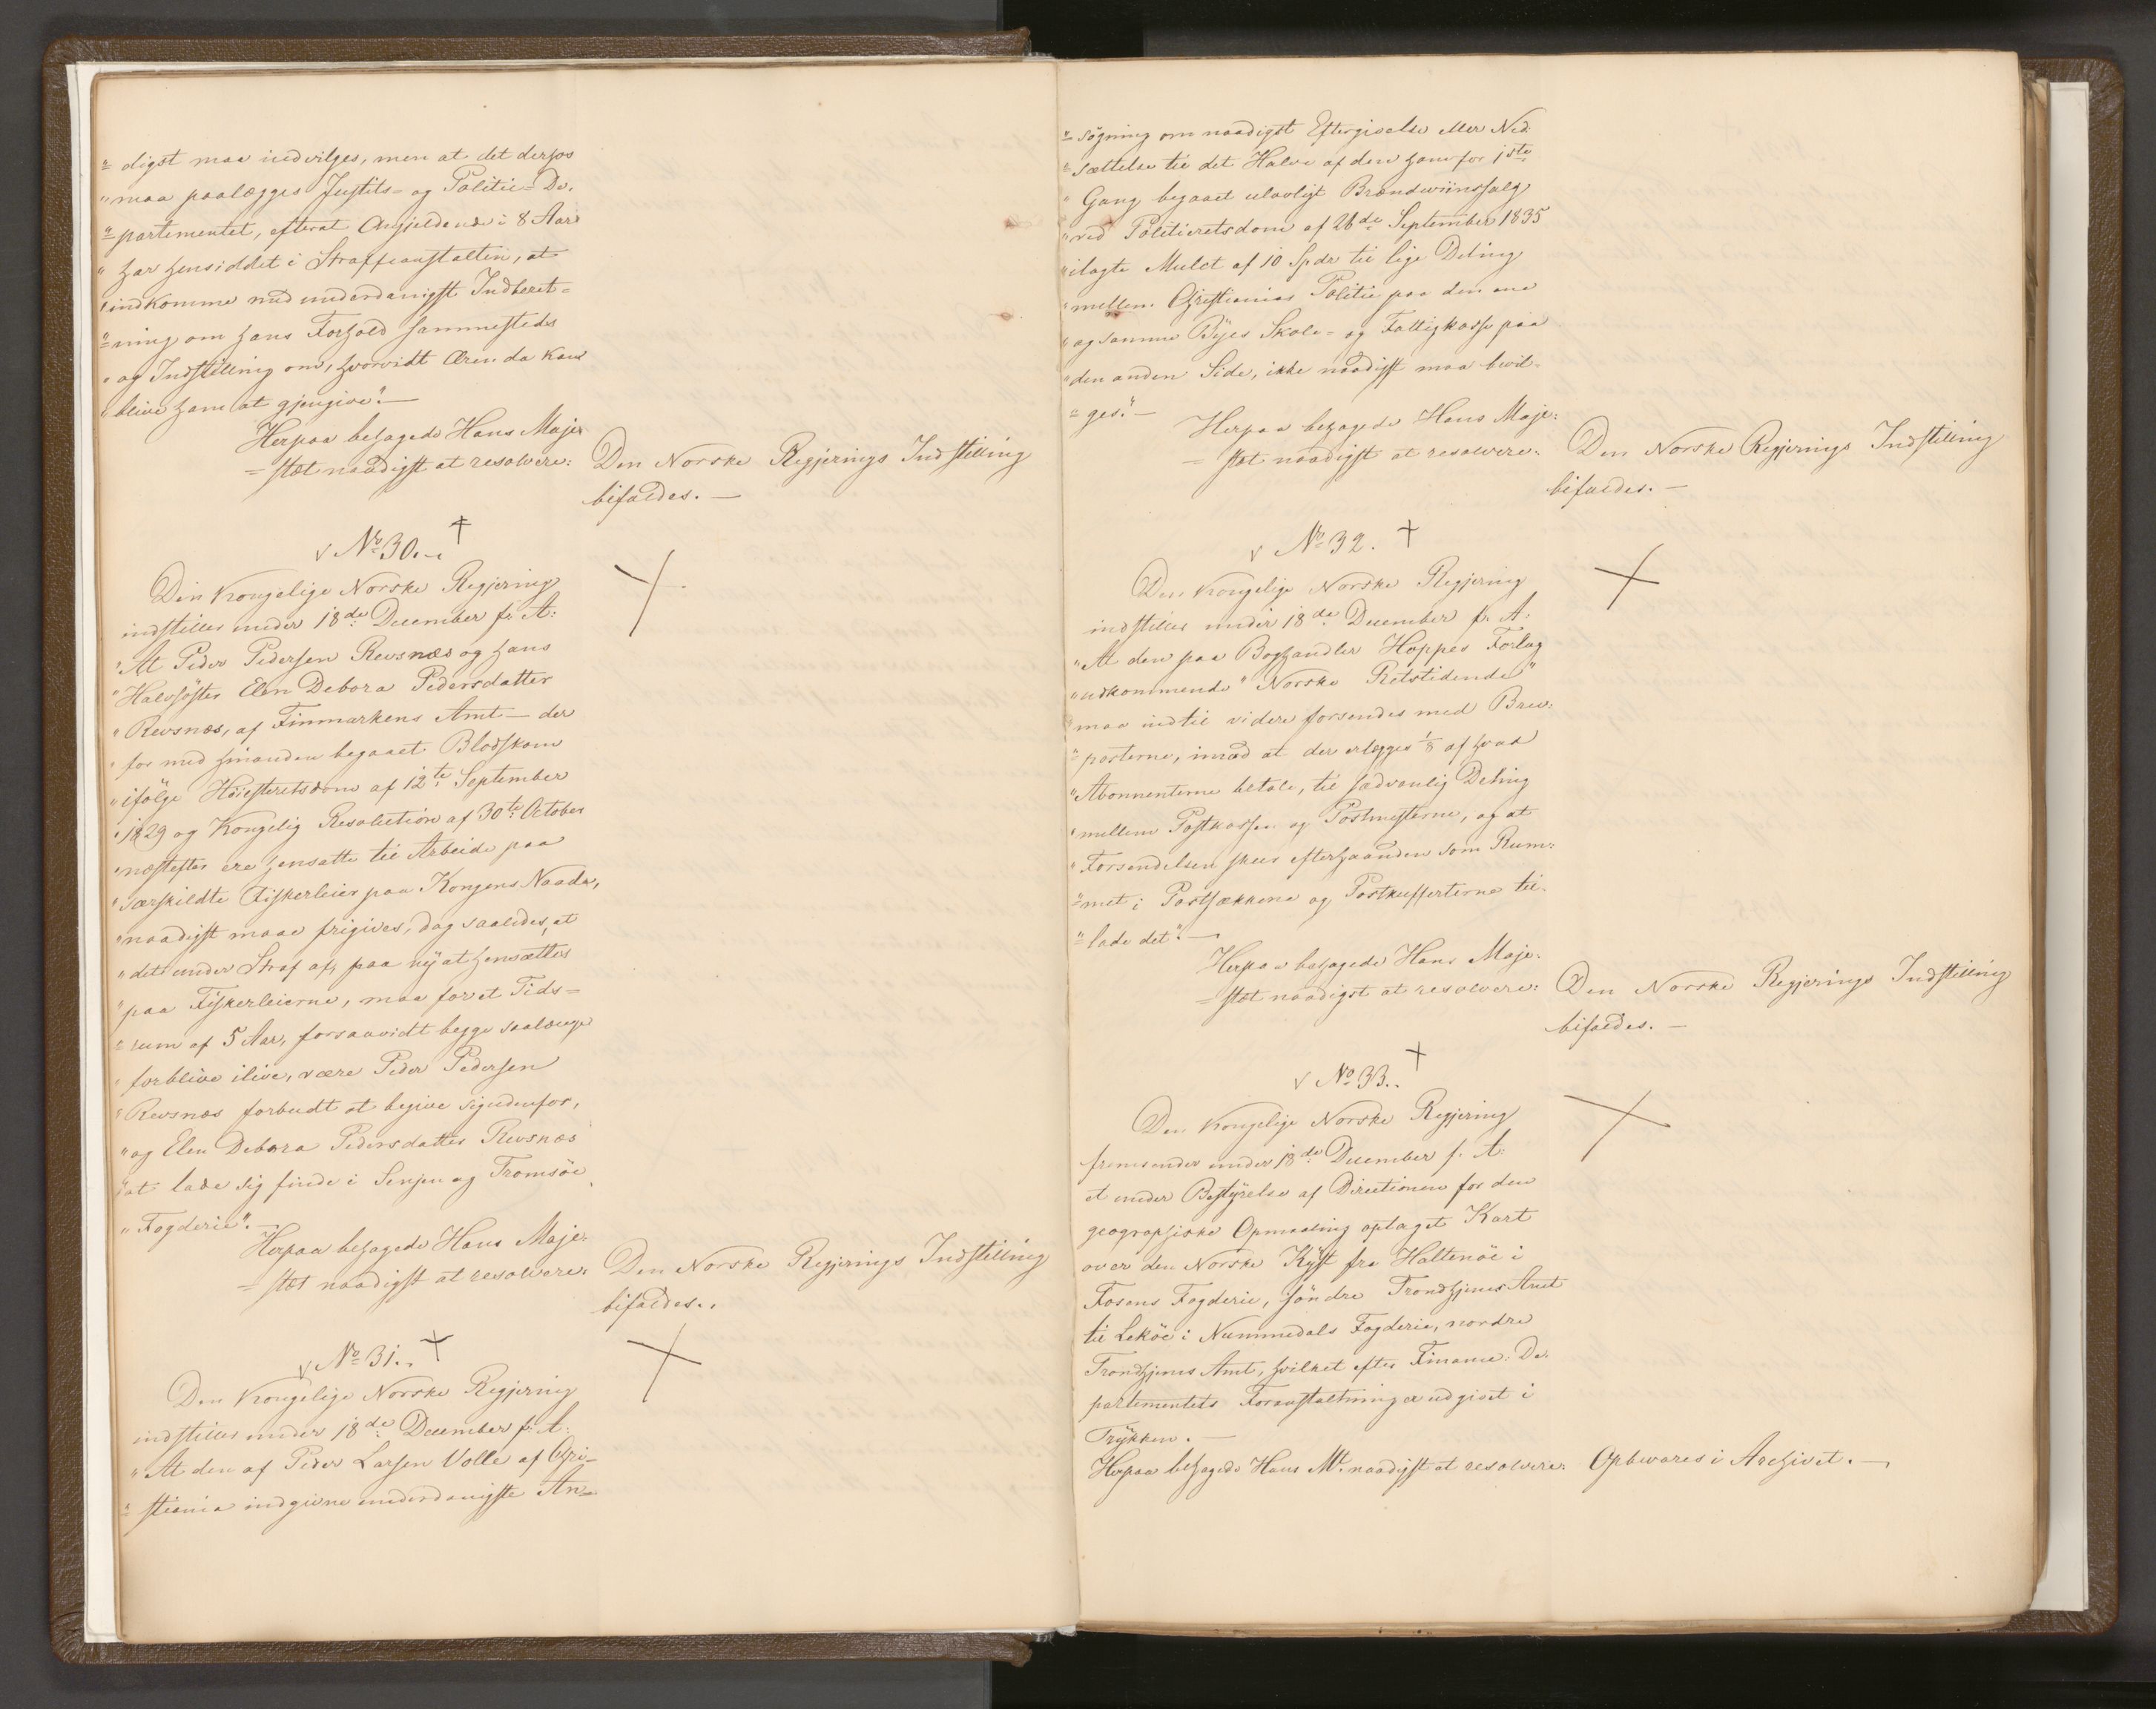 digst maa indvilges, men at det derhos
"maa paalægges Justits- og Politie-De-
"partementet, efterat Angjeldende i 8 Aar
"har hensiddet i Straffeanstalten, at
"indkomme med underdanigst Indberet=
"ning om hans Forhold sammesteds
"og Indstilling om, hvorvidt Æren da kan
"blive ham at gjengive". —
Herpaa behagede Hans Maje-
=stæt naadigst at resolvere:
Den Norske Regjerings Indstilling
bifaldes. —
No 30.
Den Kongelige Norske Regjering
indstiller under 18de December f. A:
"At Peder Pedersen Revsnæs og hans
"Halvsöster Elen Debora Pedersdatter
"Revsnæs, af Finmarkens Amt — der
"for med hinanden begaaet Blodskam
"ifölge Höiesteretsdom af 12te September
"1829 og Kongelig Resolution af 30te October
"næstefter ere hensatte til Arbeide paa
"særskildte Fiskerleier paa Kongens Naade,
"naadigst maae frigives, dog saaledes, at
"det under Straf af, paa ny at hensættes
"paa Fiskerleierne, maa for et Tids=
"rum af 5 Aar, forsaavidt begge saalænge
"forblive ilive, være Peder Pedersen
"Revsnæs forbudt at begive sig udenfor,
"og Elen Debora Pedersdatter Revsnæs
"at lade sig finde i Senjen og Tromsöe
"Fogderie". —
Herpaa behagede Hans Maje-
=stæt naadigst at resolvere:
Den Norske Regjerings Indstilling
bifaldes.
No 31.
Den Kongelige Norske Regjering
indstiller under 18de December f. A:
"At den af Peder Larsen Volle af Chri-
"stiania indgivne underdanigste An-
"sögning om naadigst Eftergivelse eller Ned-
"sættelse til det Halve af den ham for 1ste
"Gang begaaet ulovligt Brændeviinssalg
"ved Politieretsdom af 26de September 1835
"ilagte Mulct af 10 Spdr til lige Deling
"mellem Christianias Politie paa den ene
"og samme Byes Skole- og Fattigkasse paa
"den anden Side, ikke naadigst maa bevil-
"ges." —
Herpaa behagede Hans Maje-
=stæt naadigst at resolvere:
Den Norske Regjerings Indstilling
bifaldes. —
No 32.
Den Kongelige Norske Regjering
indstiller under 18de December f. A.
"At den paa Boghandler Hoppes Forlag
"udkommende "Norske Retstidende"
"maa indtil videre forsendes med Brev-
"posterne, imod at der erlægges 1/8 af hvad
"Abonnenterne betale, til sædvanlig Deling
"mellem Postkassen og Postmesterne, og at
"Forsendelsen skeer efterhaanden som Rum-
"met i Postsækkene og Postkufferterne til-
"lade det". —
Herpaa behagede Hans Maje-
=stæt naadigst at resolvere:
Den Norske Regjerings Indstilling
bifaldes. —
No 33.
Den Kongelige Norske Regjering
fremsender under 18de December f. A:
et under Bestyrelse af Directionen for den
geographiske Opmaaling optaget Kart
over den Norske Kyst fra Haltenöe i
Fosens Fogderie, söndre Trondhjems Amt
til Leköe i Nummedals Fogderie, nordre
Trondhjems Amt, hvilket efter Finance-De-
partementets Foranstaltning er udgivet i
Trykken. —
Herpaa behagede Hans Mt. naadigst at resolvere:
Opbevares i Archivet. —